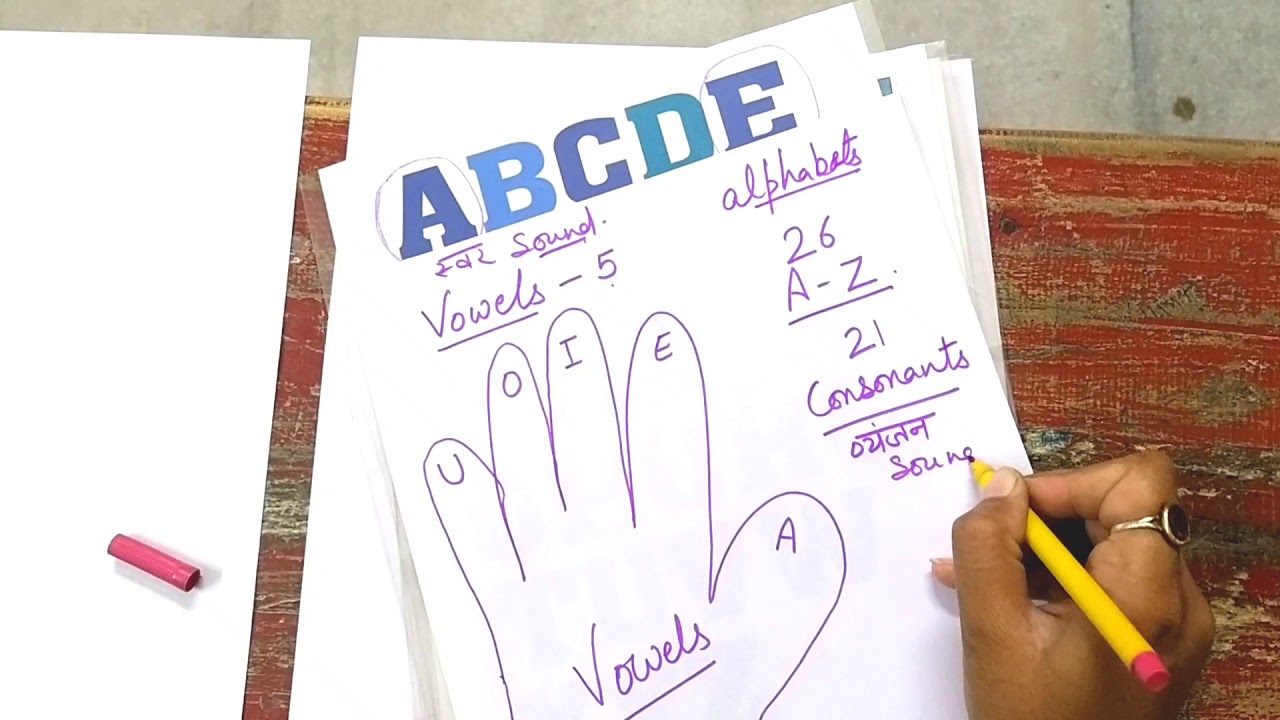 ABCDE
स्वर Sound.
Vowels - 5
alphabets
26
A - Z.
21
Consonants
व्यंजन
Soun
U
O
I
E
A
Vowels